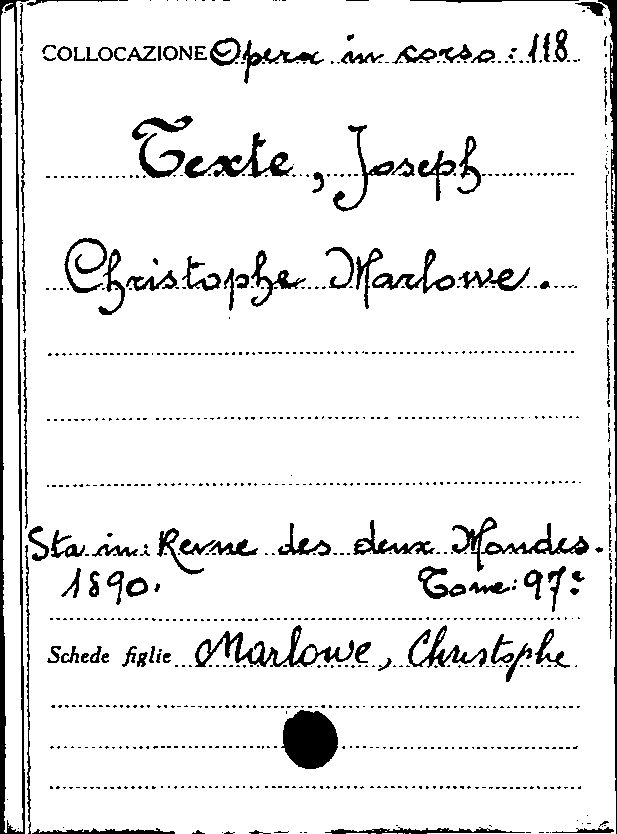 COLLOCAZIONE Opera in corso: 118
Texte, Joseph
Christophe Marlowe.
Sta in: Revue des deux Mondes.
1890. Tome: 97:e
Schede figlie Marlowe, Christophe